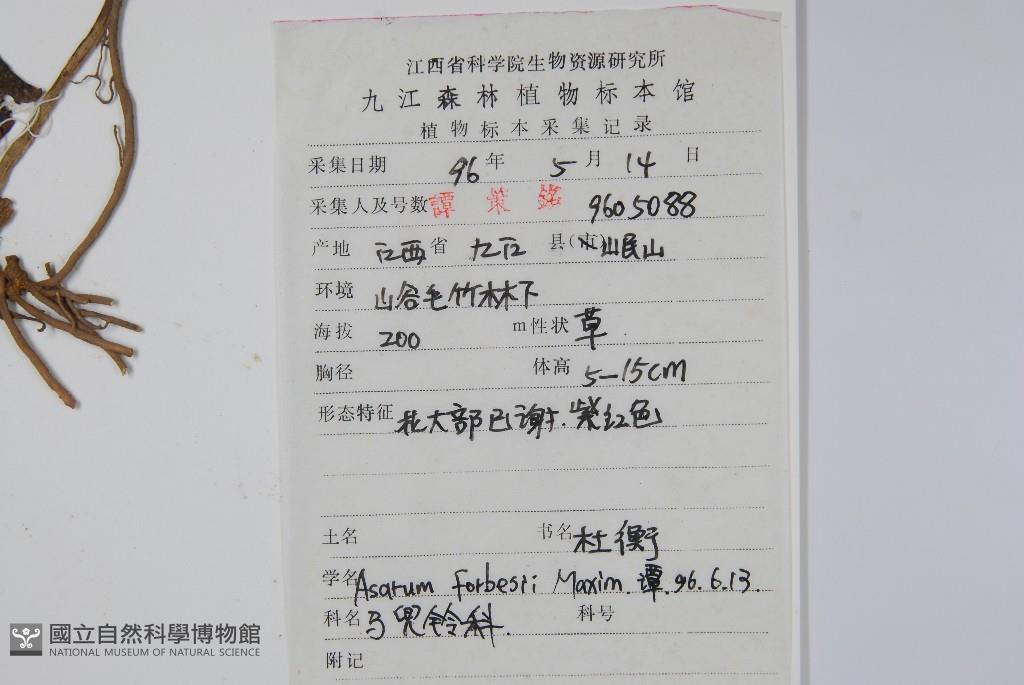 江西省科学院生物资源研究所
九江森林植物标本馆
植物标本采集记录
采集日期 96年 5月 14日
采集人及号数 譚策銘 9605088
产地 江西省 九江 县(市) 山民山
环境 山谷毛竹林下
海拔 200 m 性状 草
胸径 体高 5-15cm
形态特征 花大部已谢.紫红色
土名 书名 杜衡
学名 Asarum forbesii Maxim. 譚.96.6.13.
科名 马兜铃科. 科号
附记
國立自然科學博物館
NATIONAL MUSEUM OF NATURAL SCIENCE